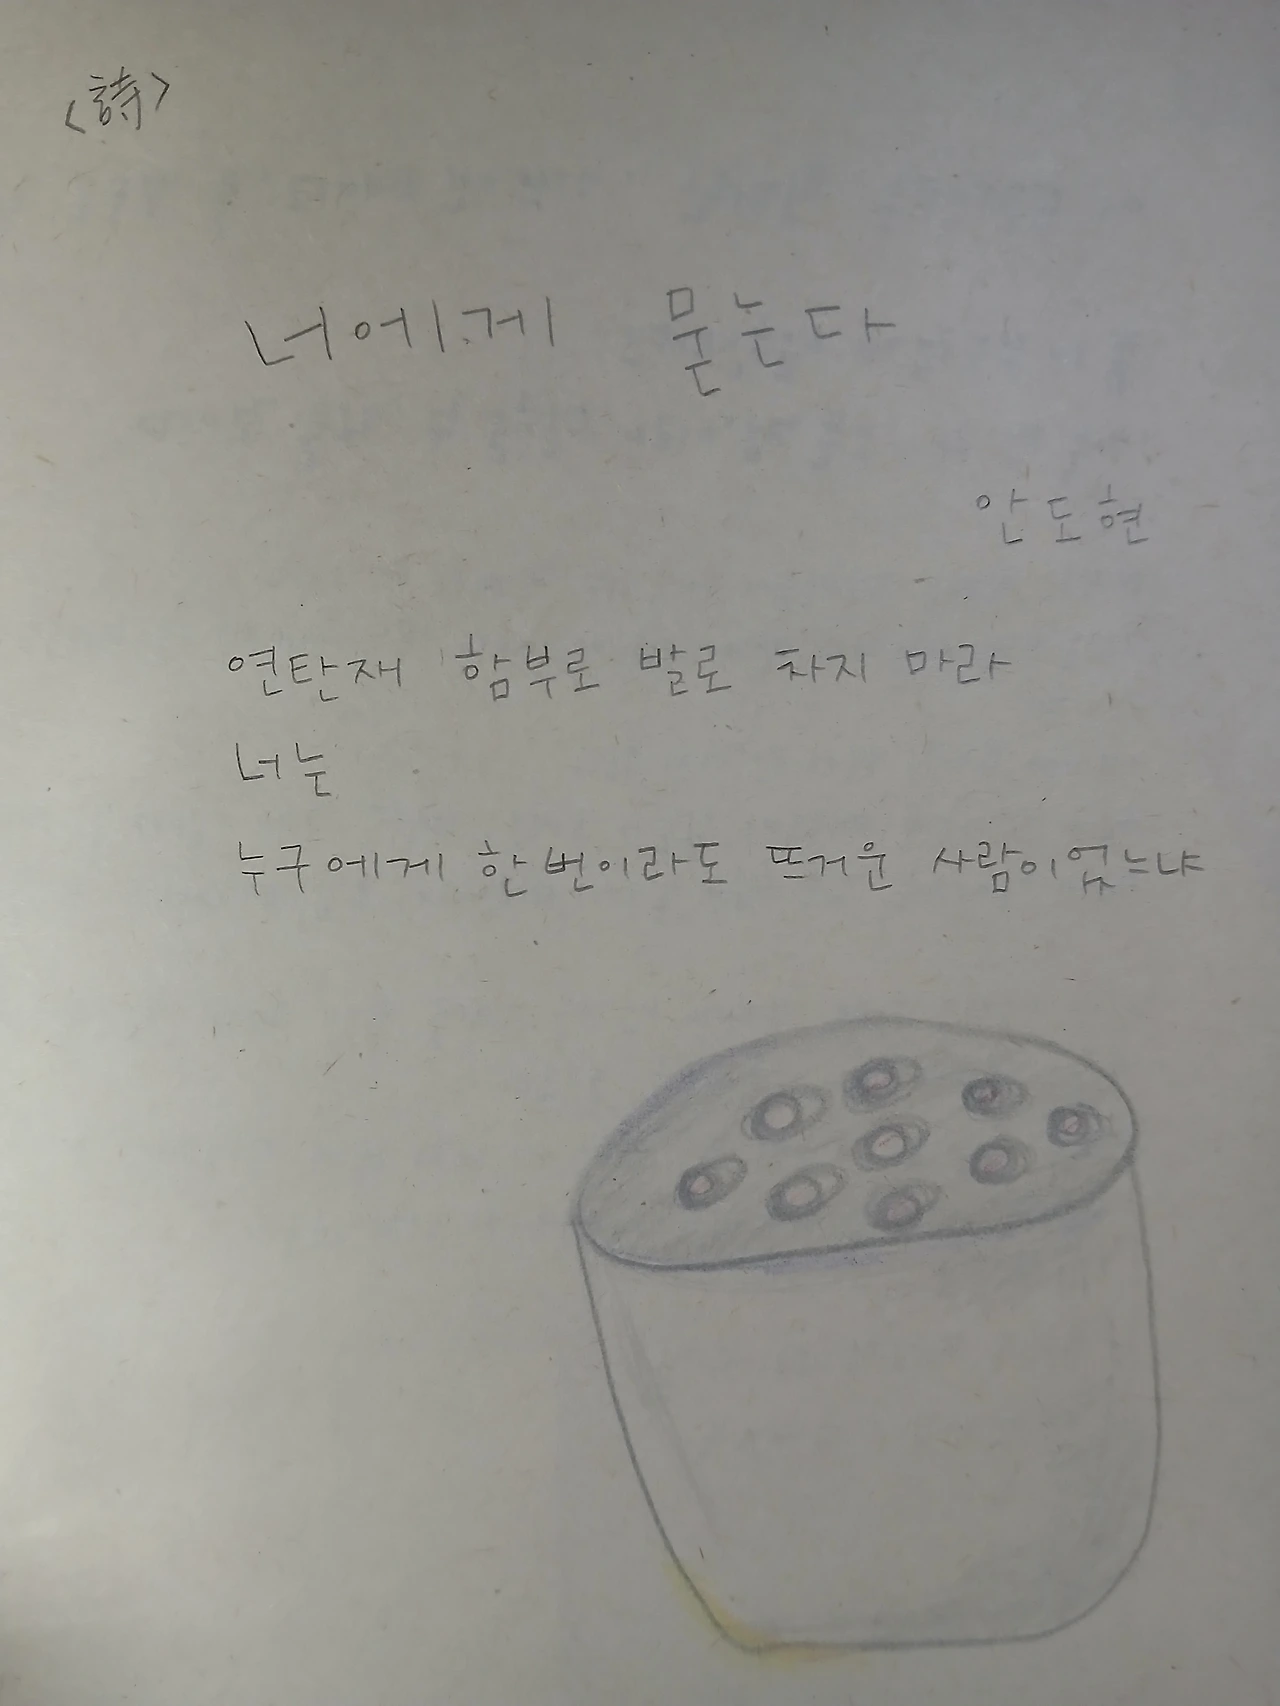 <詩>
너에게 묻는다
안도현
연탄재 함부로 발로 차지 마라
너는
누구에게 한번이라도 뜨거운 사람이었느냐